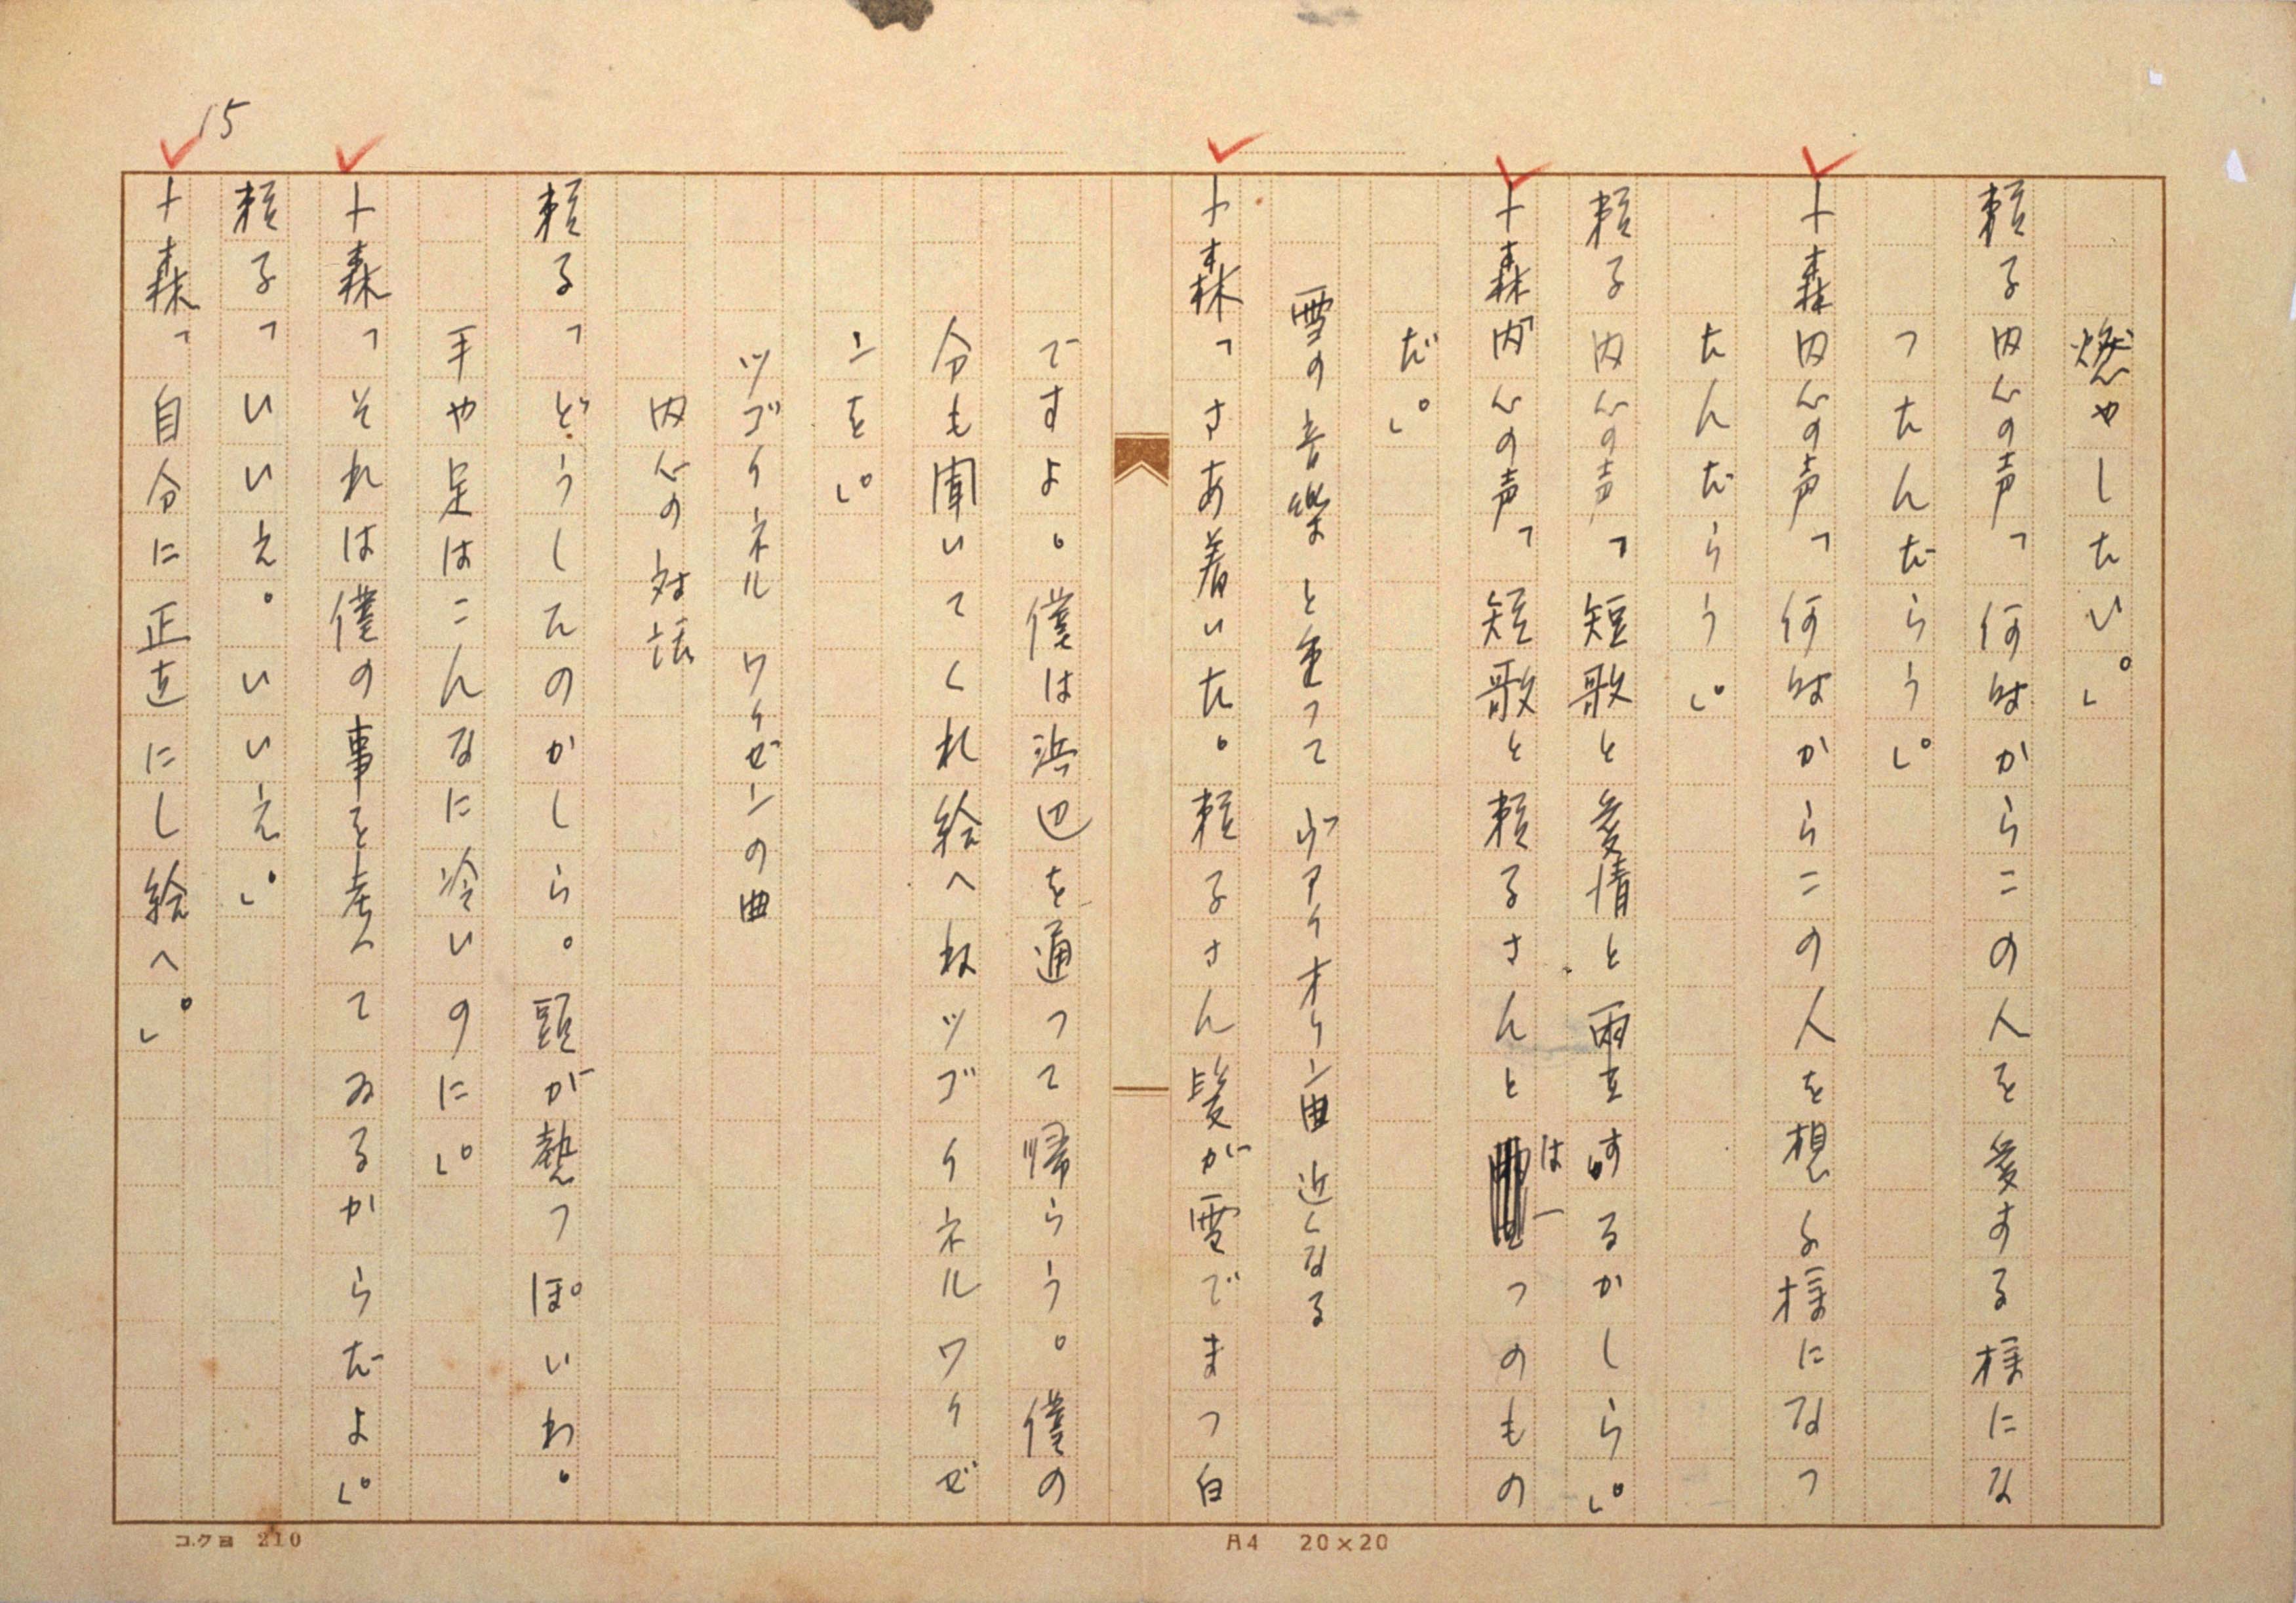 15
燃やしたい。」
頼子内心の声「何故からこの人を愛する様にな
つたんだらう。」
卜森内心の声「何故からこの人を想ふ様になつ
たんだらう。」
頼子内心の声「短歌と愛情と両立するかしら。」
卜森内心の声「短歌と頼子さんとは一つのもの
だ。」
雪の音樂と重つてヴアイオリン曲近くなる
卜森「さあ着いた。頼子さん髪が雪でまつ白
ですよ。僕は浜辺を通つて帰らう。僕の
分も聞いてくれ給へねツゴイネルワイゼ
ンを。」
ツゴイネルワイゼンの曲
内心の対話
頼子「どうしたのかしら。頭が熱つぽいわ。
手や足はこんなに冷いのに。」
卜森「それは僕の事を考へてゐるからだよ。」
頼子「いいえ。いいえ。」
卜森「自分に正直にし給へ。」
コクヨ 210
A4 20×20